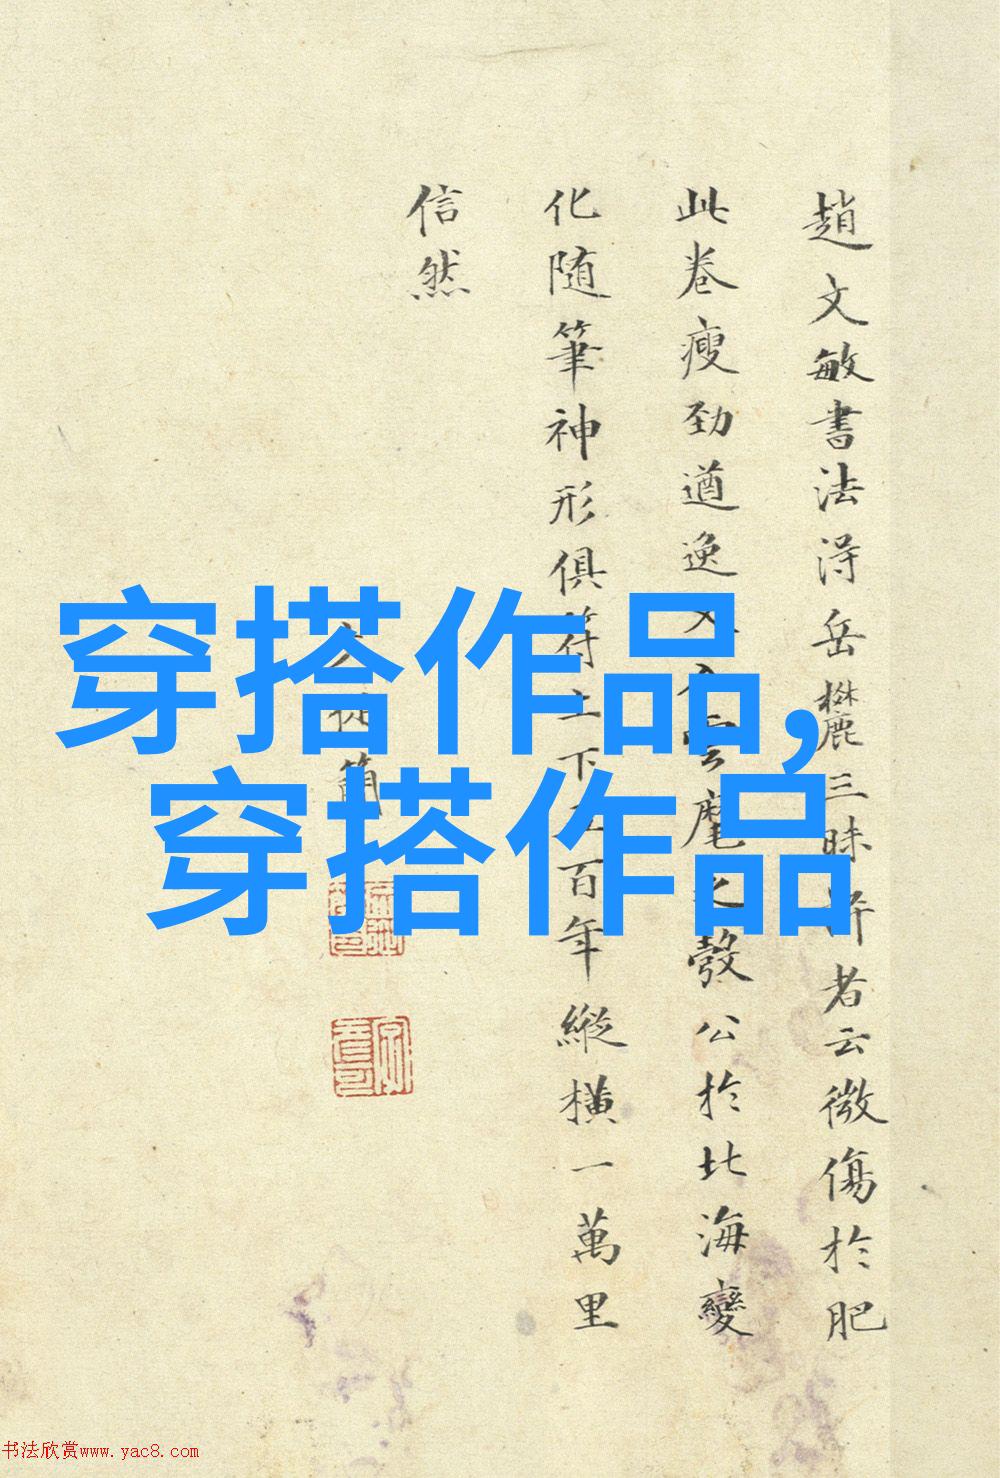 趙文敏書法淂岳麓三昧弁者云微傷於肥
此卷瘦劲遒逸 雲麾之 公於北海變
化随筆神形俱符上下五百年縱橫一萬里
信然
穿搭作品,
穿搭作品
书法欣赏www.yac8.com